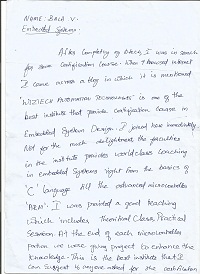 NAME: BALA .V.
Embedded Systems.
After Completing of BTech, I was in search
for some certification course. When I browsed internet
I came across a blog in which it is mentioned
"WIZTECH AUTOMATION TECHNOLOGIES" is one of the
best institute that provides certification course in
Embedded System Design. I joined here immediately.
Not for the much delightment the faculties
in the institute provides world class teaching
in embedded systems right from the basics of
'C' language till the advanced microcontroller
"ARM". I was provided a good teaching
which includes Theoritical Class, Practical
Session. At the end of each microcontroller
portion we were giving project to enhance the
knowledge. This is the best institute that I
can suggest to anyone asked for the certification